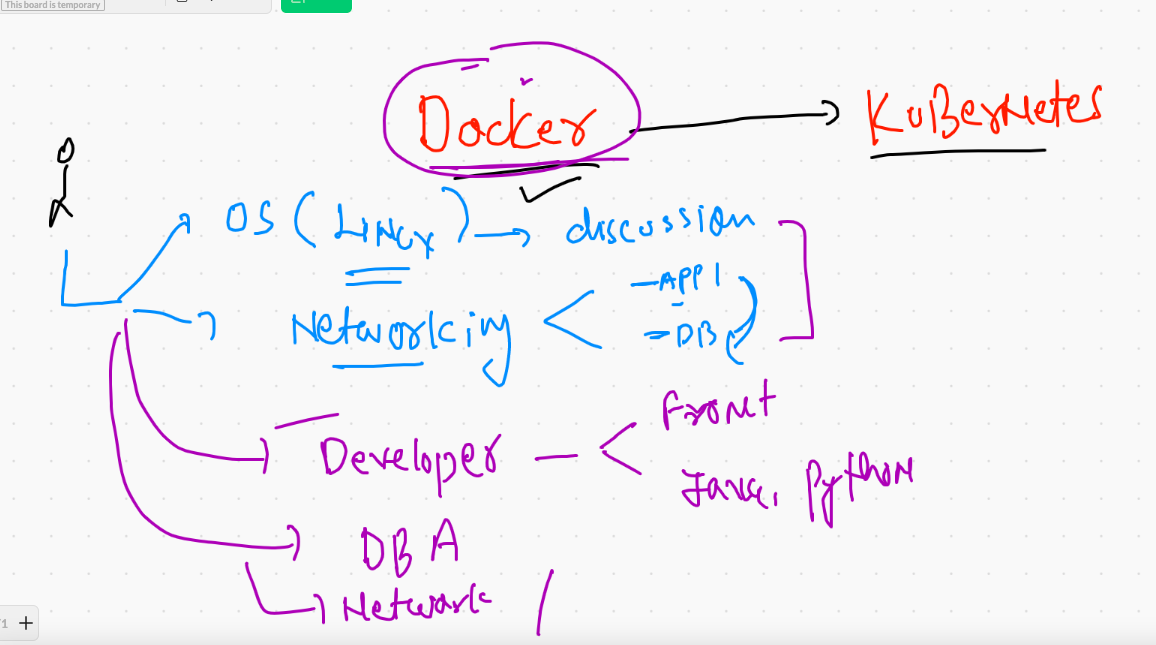 This board is temporary
Docker → KuBerNetes
OS (LiNux) → discussion
- APP1
Networking
= DB
Front
Developer -
Java, Python
DBA
Network
1 +